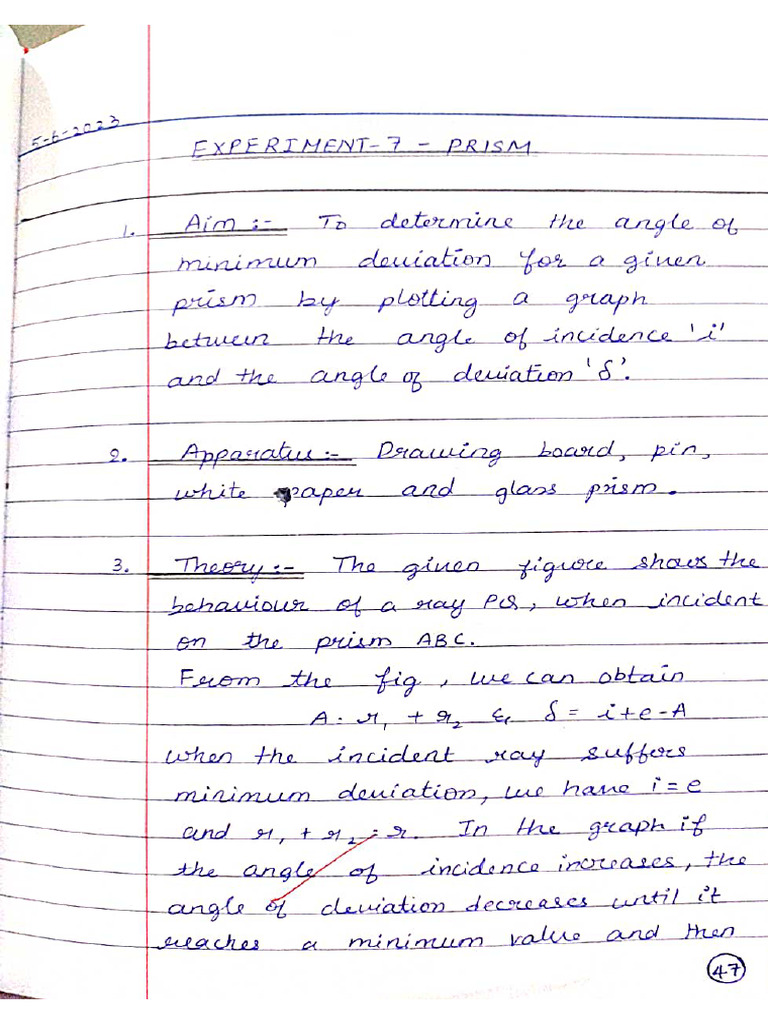 5-6-2023
EXPERIMENT-7 - PRISM
1. Aim :- To determine the angle of
minimum deviation for a given
prism by plotting a graph
between the angle of incidence 'i'
and the angle of deviation 'δ'.
2. Apparatus :- Drawing board, pin,
white paper and glass prism.
3. Theory :- The given figure shows the
behaviour of a ray PQ, when incident
on the prism ABC.
From the fig, we can obtain
A = r₁ + r₂ & δ = i+e-A
when the incident ray suffers
minimum deviation, we have i = e
and r₁ + r₂ = r. In the graph if
the angle of incidence increases, the
angle of deviation decreases until it
reaches a minimum value and then
47